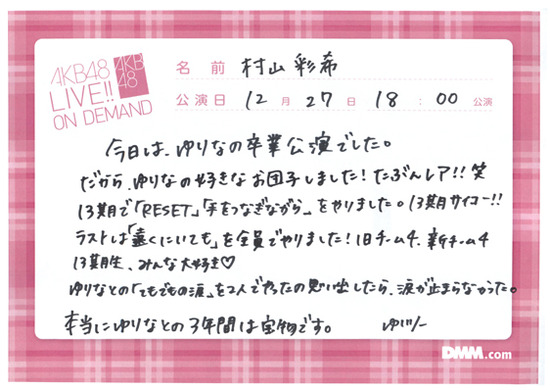 AKB48
LIVE!!
ON DEMAND
AKB
48
名 前 村山彩希
公演日 12 月 27 日 18 : 00 公演
今日は、ゆりなの卒業公演でした。
だから、ゆりなの好きなお団子しました!たぶんレア!!笑
13期で「RESET」「手をつなぎながら」をやりました。13期サイコー!!
ラストは「遠くにいても」を全員でやりました!旧チーム4、新チーム4
13期生、みんな大好き♡
ゆりなとの「てもでもの涙」を2人でやったの思い出したら、涙が止まらなかった。
本当にゆりなとの3年間は宝物です。
DMM.com